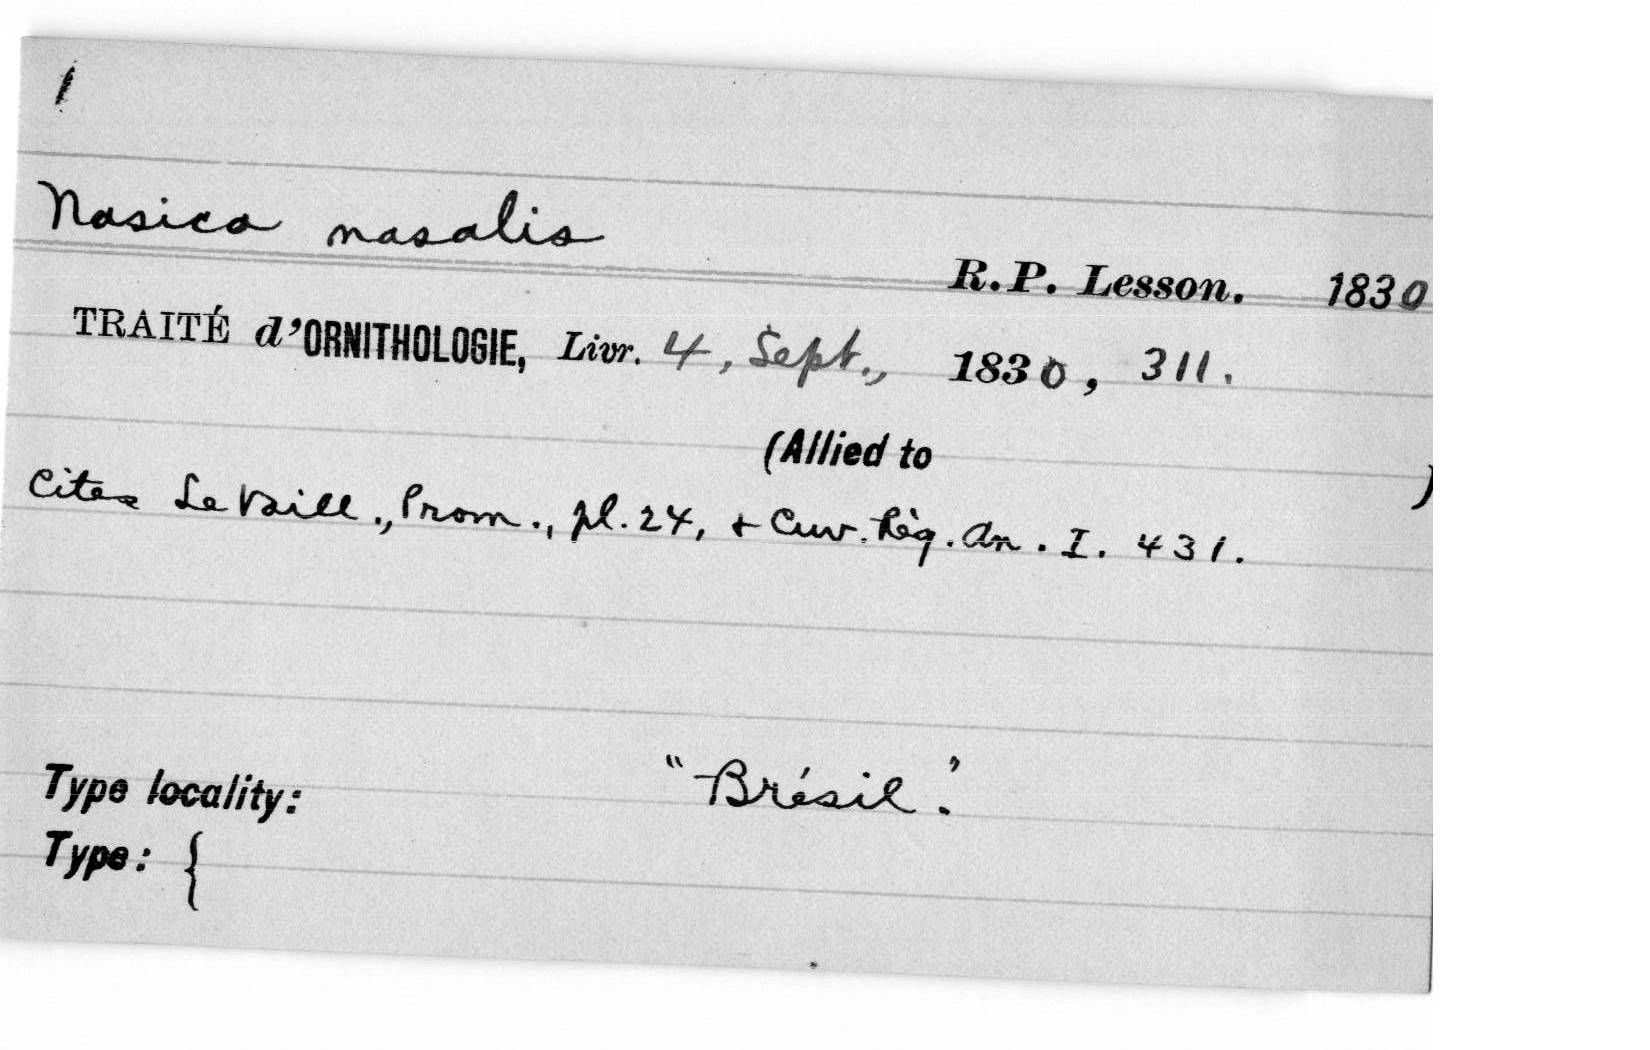 1
Nasica nasalis
R.P. Lesson. 1830
TRAITÉ d'ORNITHOLOGIE, Livr. 4, Sept., 1830, 311.
(Allied to )
Cites Le Vaill., Prom., pl. 24, + Cuv. Règ. An. I. 431.
Type locality: "Brésil."
Type: {